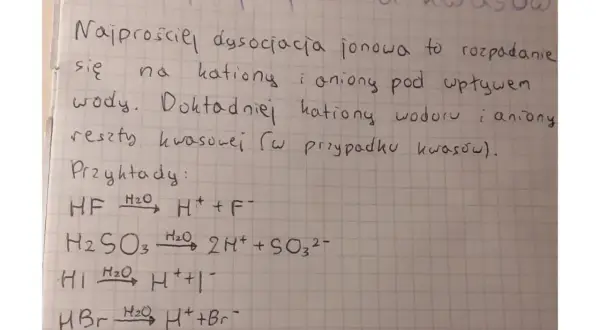 Najprościej dysocjacja jonowa to rozpadanie
się na kationy i aniony pod wpływem
wody. Dokładniej kationy wodoru i aniony
reszty kwasowej (w przypadku kwasów).
Przykłady:
HF H₂O→ H⁺ + F⁻
H₂SO₃ H₂O→ 2H⁺ + SO₃²⁻
HI H₂O→ H⁺+I⁻
HBr H₂O→ H⁺+Br⁻